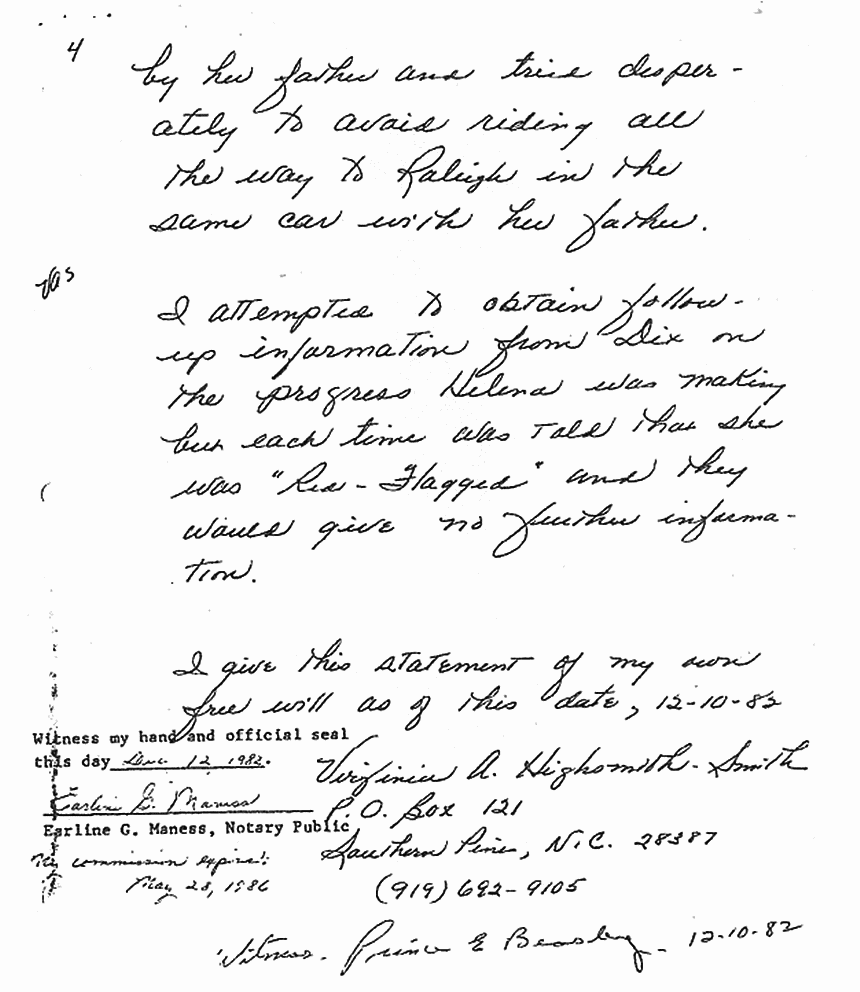 4
by her father and tried desper-
ately to avoid riding all
the way to Raleigh in the
same car with her father.
vas
I attempted to obtain follow-
up information from Dix on
the progress Helena was making
but each time was told that she
was "Red-Flagged" and they
would give no further informa-
tion.
I give this statement of my own
free will as of this date, 12-10-82
Witness my hand and official seal
this day Dec. 12 1982.
Virginia A. Highsmith-Smith
Earline G. Maness
P.O. Box 121
Earline G. Maness, Notary Public
Southern Pines, N.C. 28387
My commission expires:
May 28, 1986
(919) 692-9105
Witness. Prince E Beasley - 12-10-82